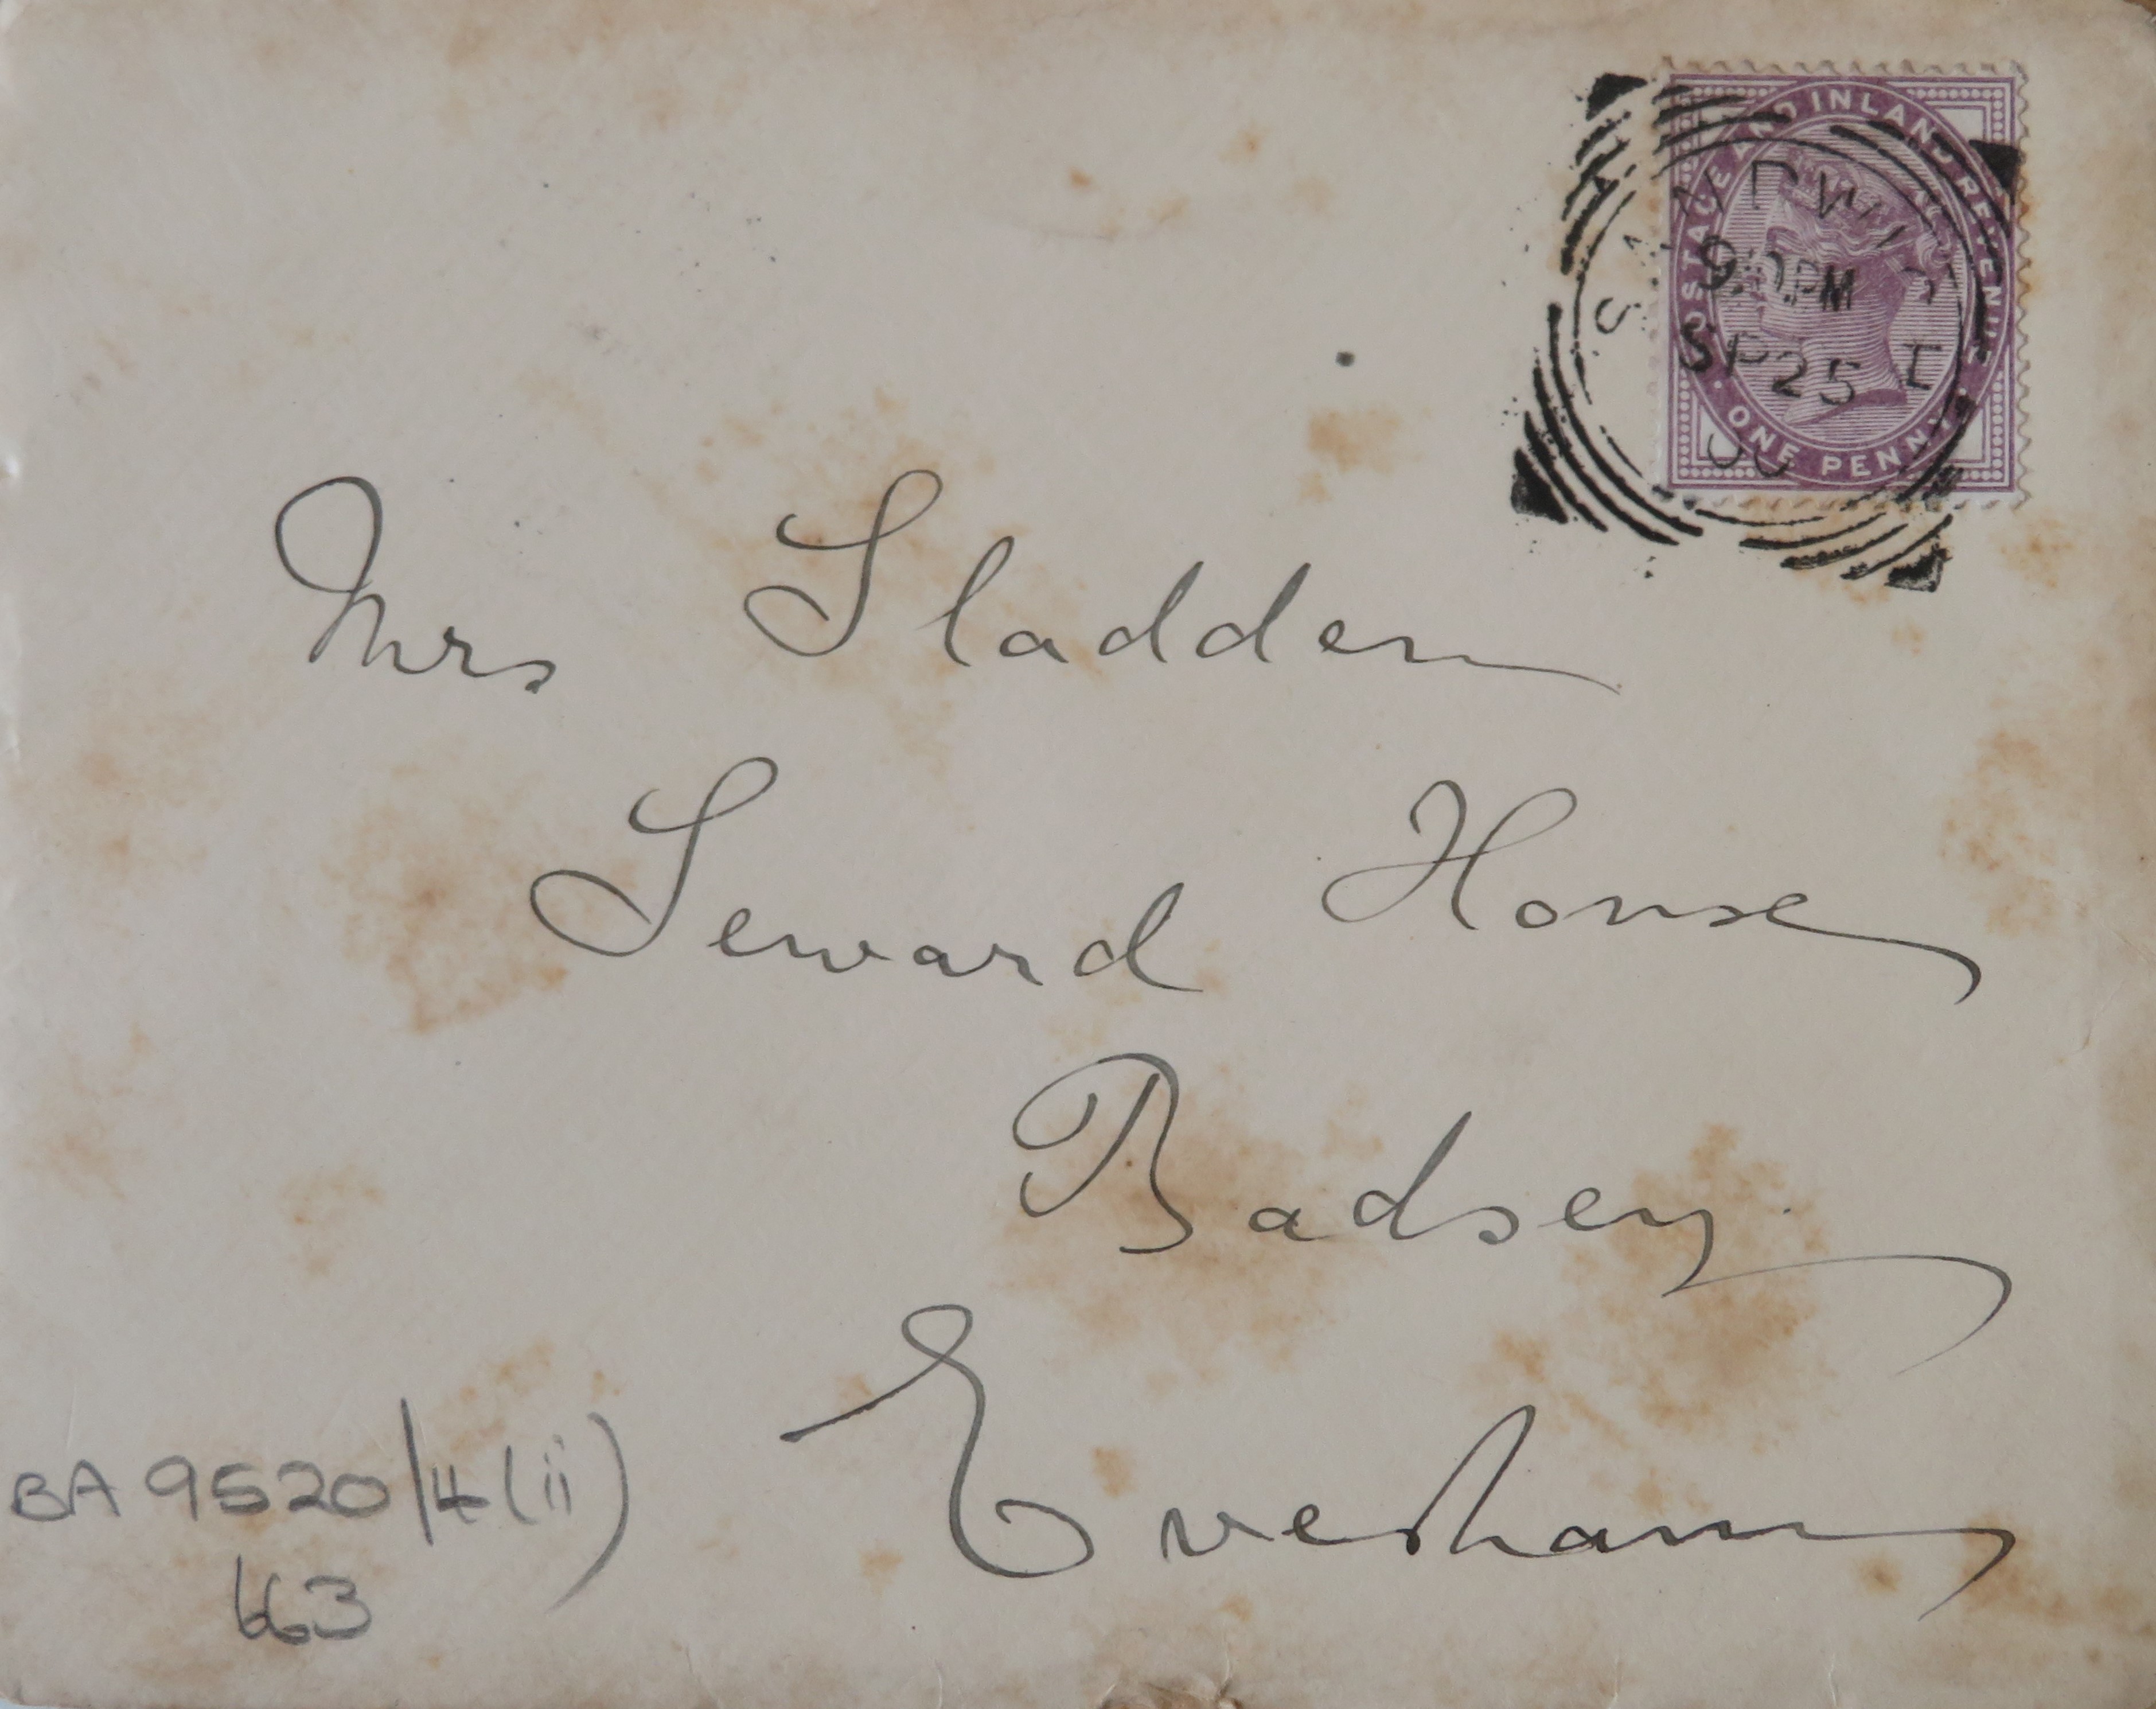 POSTAGE AND INLAND REVENUE
SANDWICH
9.0 PM
SP 25
00
ONE PENNY
Mrs Sladden
Seward House
Badsey
Evesham
BA 9520/4(ii)
663